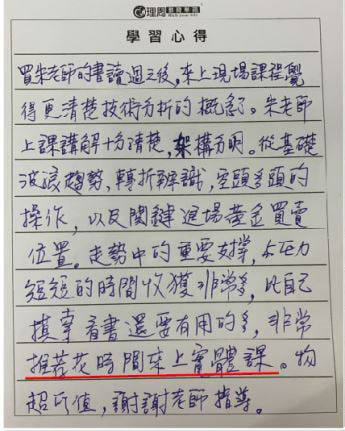 理周教育學苑
學習心得
買朱老師的書讀過之後,來上現場課程覺
得更清楚技術分析的概念了。朱老師
上課講解十分清楚,架構分明。從基礎
波浪趨勢,轉折辨識,空頭多頭的
操作,以及關鍵進場黃金買賣
位置。走勢中的重要支撐,与压力
短短的時間收獲非常多,比自己
摸索看書還要有用的多,非常
推荐花時間來上實體課。物
超所值,謝謝老師指導。